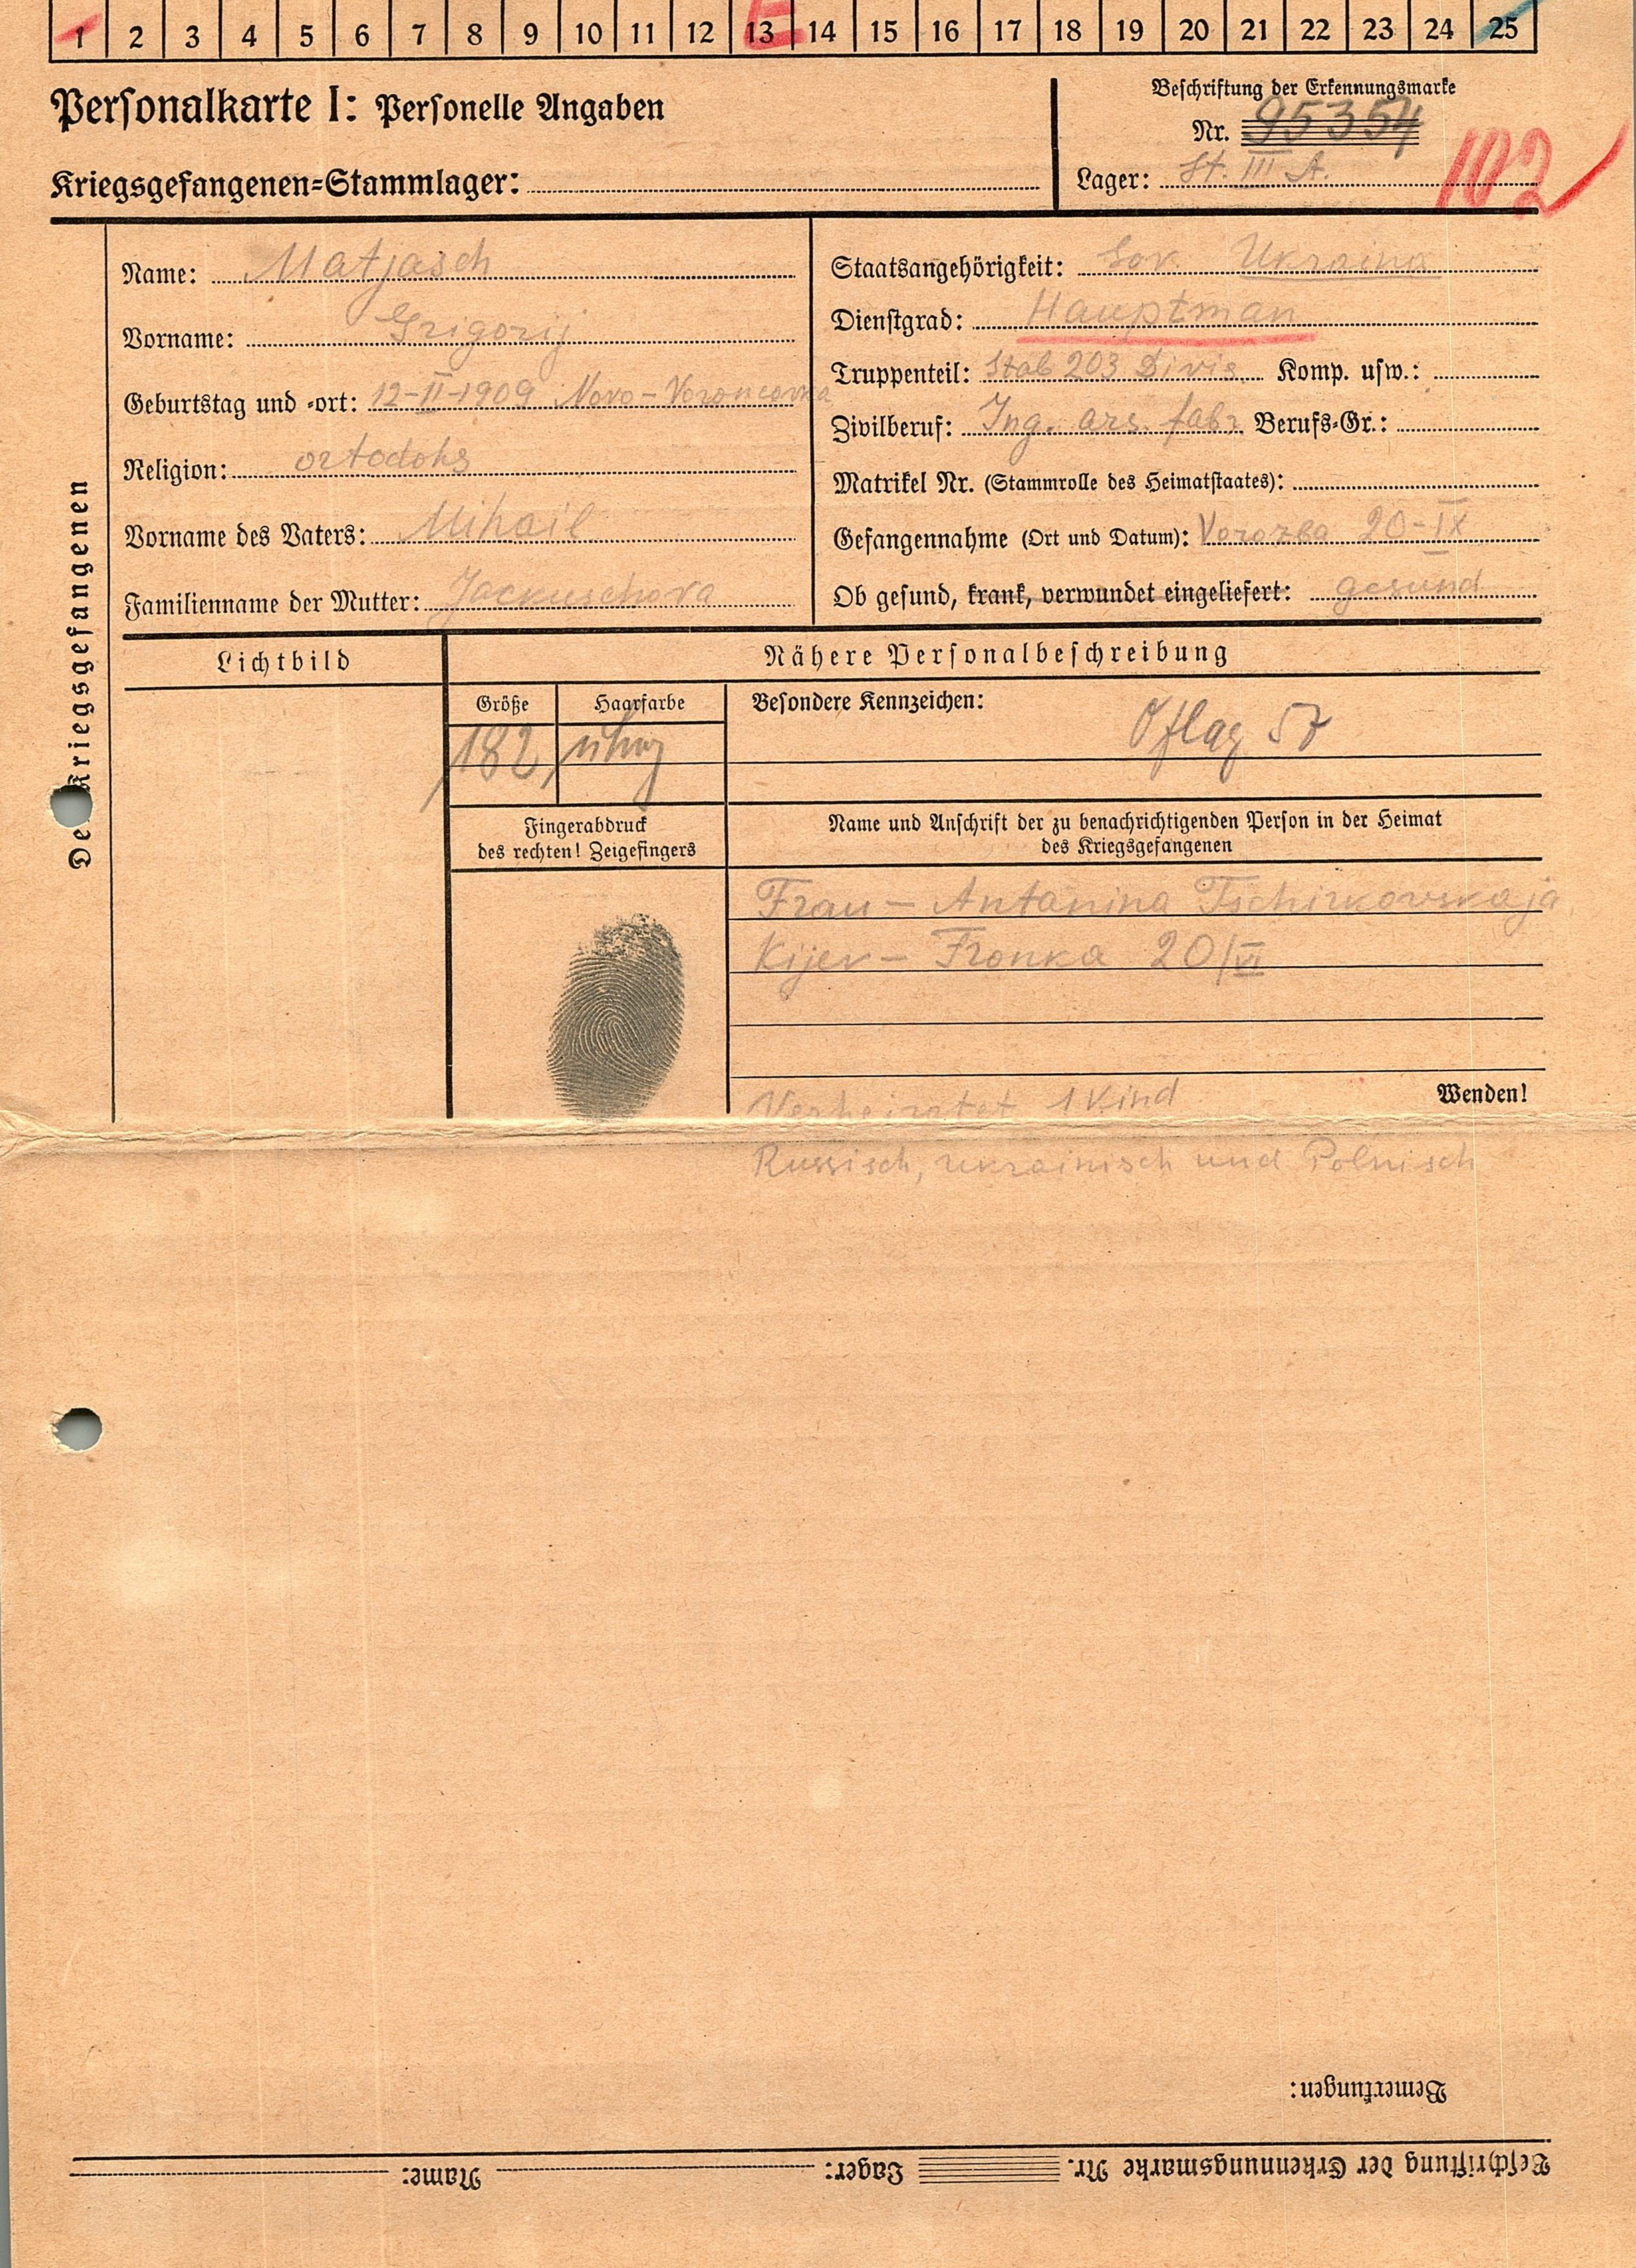 1 2 3 4 5 6 7 8 9 10 11 12 13 14 15 16 17 18 19 20 21 22 23 24 25
E
Personalkarte I: Personelle Angaben
Beschriftung der Erkennungsmarke
Nr. 95354
Kriegsgefangenen-Stammlager:
Lager: St. III A.
102
Des Kriegsgefangenen
Name: Matjasch
Vorname: Grigorij
Geburtstag und -ort: 12-II-1909 Novo-Voroncovka
Religion: ortodohs
Vorname des Vaters: Mihail
Familienname der Mutter: Jackuschova
Staatsangehörigkeit: Sov. Ukraina
Dienstgrad: Hauptman
Truppenteil: Stab 203 Divis. Komp. usw.:
Zivilberuf: Ing. ars. fabr. Berufs-Gr.:
Matrikel Nr. (Stammrolle des Heimatstaates):
Gefangennahme (Ort und Datum): Vorozba 20-IX
Ob gesund, krank, verwundet eingeliefert: gesund
Lichtbild
Nähere Personalbeschreibung
Größe
Haarfarbe
Besondere Kennzeichen:
182
Oflag 57
Fingerabdruck
des rechten! Zeigefingers
Name und Anschrift der zu benachrichtigenden Person in der Heimat
des Kriegsgefangenen
Frau - Antanina Tschirkovskaja
Kijev - Fronka 20/VI
Verheiratet 1 Kind
Wenden!
Russisch, ukrainisch und Polnisch
Bemerkungen:
Beschriftung der Erkennungsmarke Nr. Lager: Name: